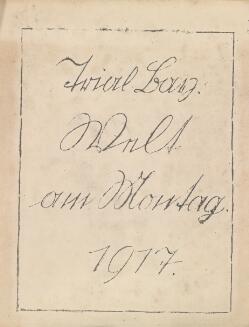 Trial Bay:
Welt
am Montag.
1917.